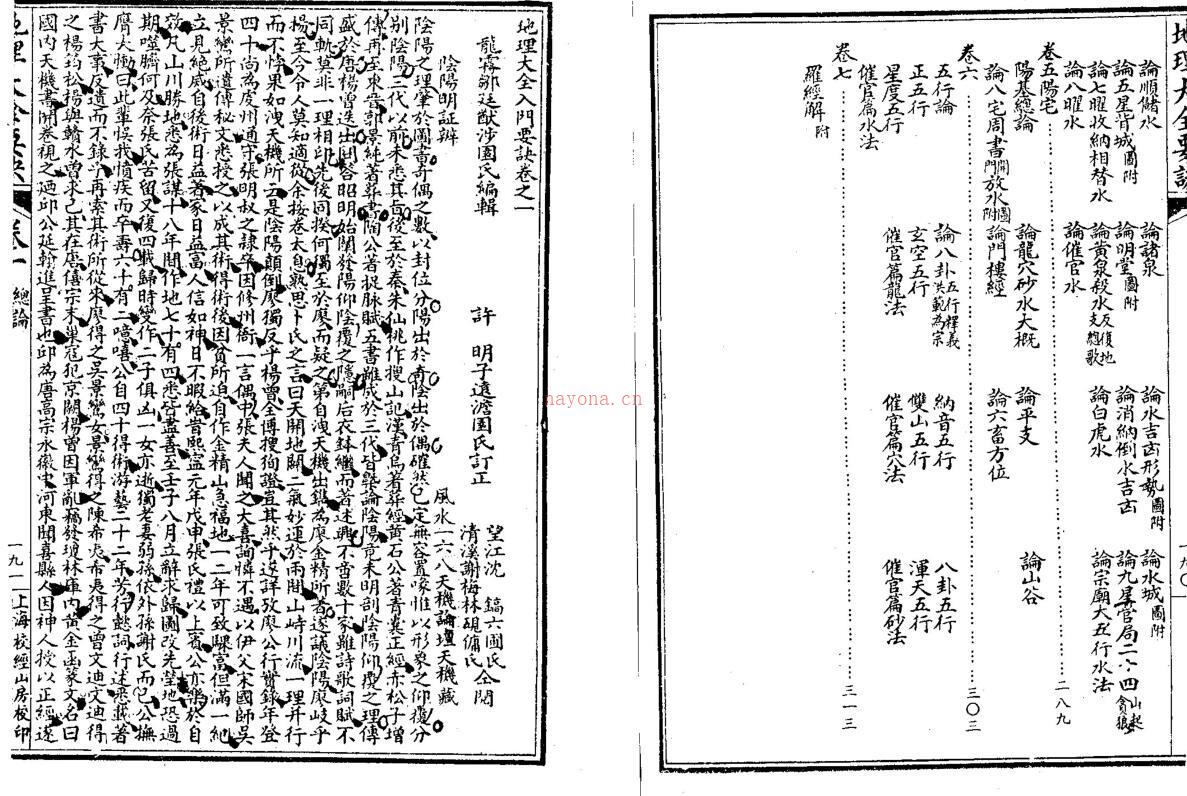 地理大全要訣
一九〇
論順儲水　論諸泉　論水吉凶形勢圖附　論水城圖附
論五星背城圖附　論明堂圖附　論消納倒水吉凶　論九星管局二十四山起貪狼
論七曜收納相替水　論黃泉殺水反復地支總歌　論白虎水　論宗廟大五行水法
論八曜水　論催官水
卷五陽宅……二八九
陽基總論　論龍穴砂水大概　論平支　論山谷
論八宅周書開門放水圖附　論門樓經　論六畜方位
卷六……三〇三
五行論　論八卦五行釋義洪範為宗　納音五行　八卦五行
正五行　玄空五行　雙山五行　渾天五行
星度五行　催官篇龍法　催官篇穴法　催官篇砂法
催官篇水法
卷七……三一三
羅經解附
nayona.cn
地理大全入門要訣卷之一
龍霧鄒廷猷沙園氏編輯　許明子遠澹園氏訂正　望江沈鎬六圃氏仝閱
清溪謝梅林硯傭氏
陰陽明証辨　風水一六八天機論壇天機藏
陰陽之理肇於圖書奇偶之數以封位分陽出於奇陰出於偶確然已定無容置喙惟以形象之仰覆分
別陰陽三代以前未悉其旨後至於秦朱仙桃作搜山記漢青烏著葬經黃石公著青囊正經赤松子增
傳再至東晋郭景純著葬書陶公著捉脉賦五書雖成於三代皆槩論陰陽竟未明剖陰陽仰覆之理傳
盛於唐楊曾迭出問答昭明始闢發陽仰陰覆之隱嗣后衣鉢繼而著述興不啻數十家雖詩歌詞賦不
同軌莫非一理相印先後同揆何獨至於廖而疑之第自洩天機出鐫為廖金精所著遂議陰陽廖岐乎
楊至今令人莫知適從余接卷太息熟思卜氏之言曰天開地闢二氣妙運於兩間山峙川流一理并行
而不悖果如洩天機所云是陰陽顛倒廖獨反乎楊曾全傳搜狥證豈其然乎遂詳攷廖公行實錄年登
四十尚為虔州通守張明叔之隷卒因修州衙一言偶中張夫人聞之大喜詢憐不遇以伊父宋國師吳
景鸞所遺傳秘文悉授之以成其術得術後因貧所迫自作金精山急福地一二年可致驟富但滿一紀
立見絕威自後術日益著家日益富人信如神日不暇給當熙寧元年戊申張氏禮以上賓公亦樂於自
效凡山川勝地悉為張謀十八年間作地七十有四悉皆盡善至壬子八月立辭求歸圖改先塋地恐過
期噬臍何及奈張氏苦留又後四載歸時變作二子俱凶一女亦逝獨老妻弱孫依外孫謝氏而已公撫
膺大慟曰此輩悞我憤疾而卒壽六十有二噫嘻公自四十得術游藝二十二年芳行懿詞行述悉載著
書大事反遺而不錄乎再索其術所從來廖得之吳景鸞女景鸞得之陳希夷希夷得之曾文迪文迪得
之楊筠松楊與贛水曾求己其在唐僖宗末巢寇犯京關楊曾因軍亂竊發瓊林庫内黃金函篆文名曰
國内天機書開卷視之廼邱公延翰進呈書也邱為唐高宗永徽中河東聞喜縣人因神人授以正經遂
地理大全要訣　卷一　總論　一九一　上海校經山房校印